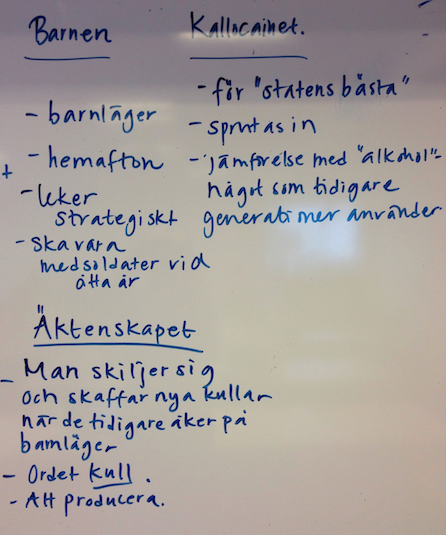 Barnen
- barnläger
+ - hemafton
- leker
strategiskt
- ska vara
medsoldater vid
åtta år
Kallocainet.
- för "statens bästa"
- sprutas in
- jämförelse med "alkohol"-
något som tidigare
generationer använder
Äktenskapet
- Man skiljer sig
och skaffar nya kullar
när de tidigare åker på
barnläger
- Ordet kull.
- Att producera.